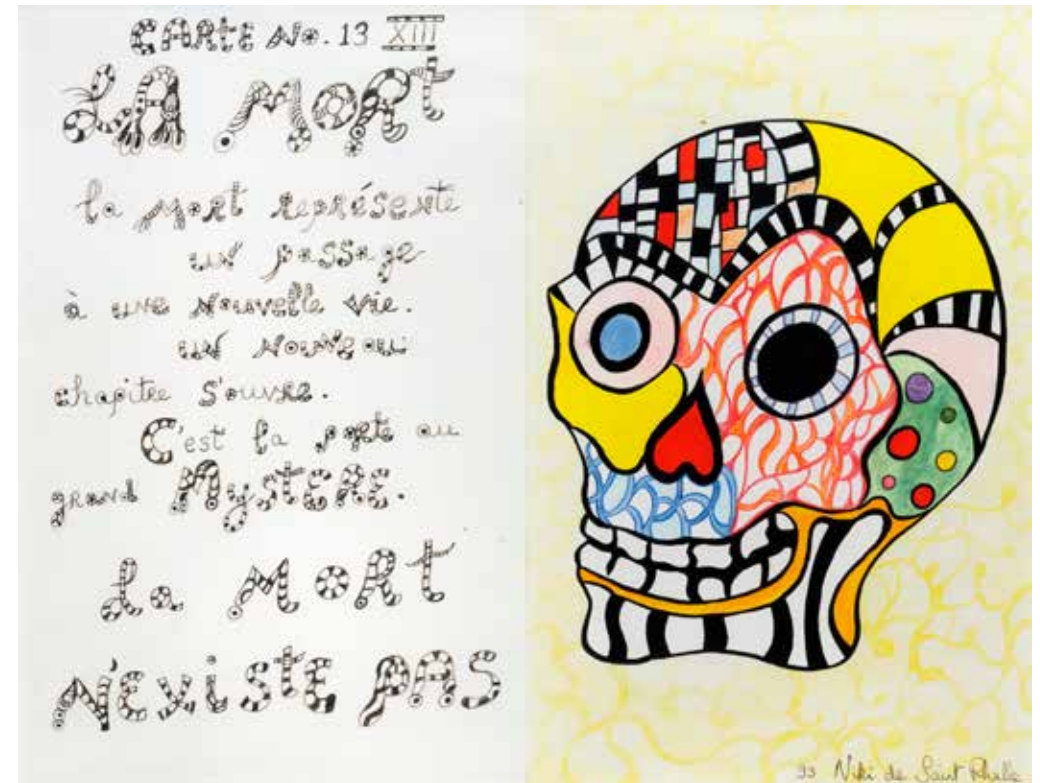 CARTE No. 13 XIII
LA MORt
la mort représente
un passage
à une nouvelle vie.
un nouveau
chapitre s'ouvre.
C'est la porte au
grand MYSTERE.
La MORt
N'EXISTE PAS
93 Niki de Saint Phalle